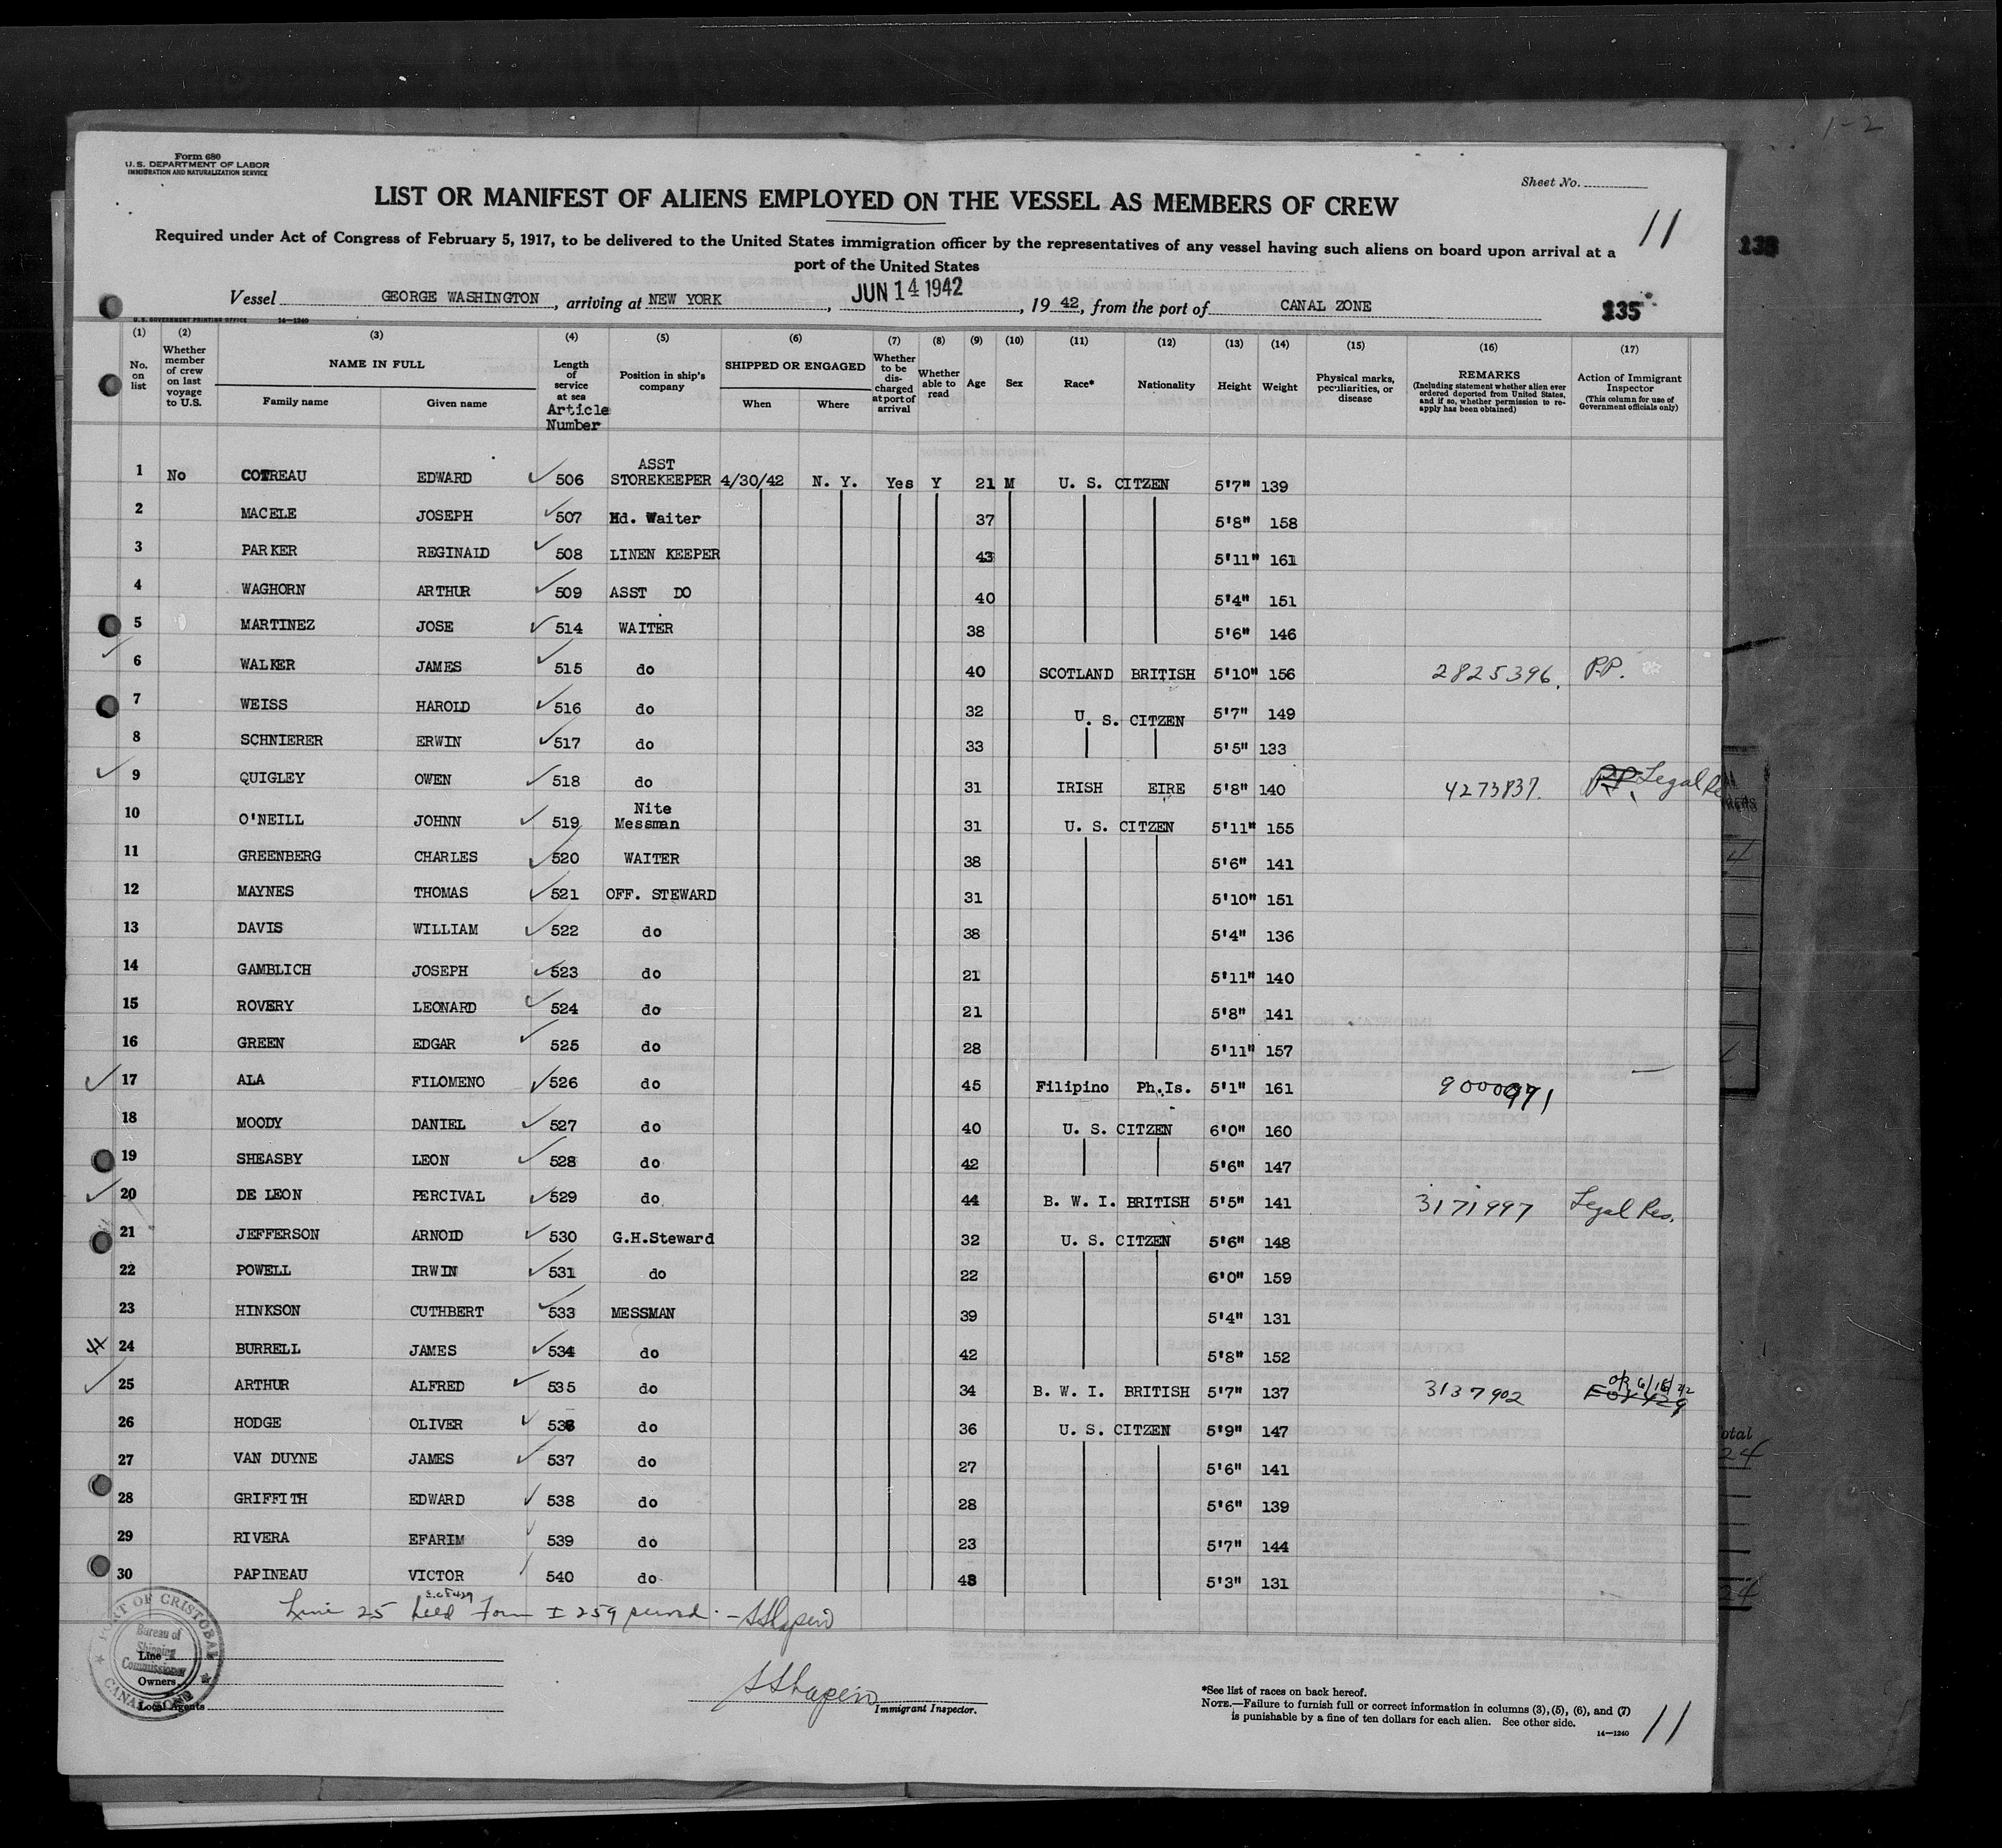 1-2
Form 680
U. S. DEPARTMENT OF LABOR
IMMIGRATION AND NATURALIZATION SERVICE
Sheet No.
LIST OR MANIFEST OF ALIENS EMPLOYED ON THE VESSEL AS MEMBERS OF CREW
11
Required under Act of Congress of February 5, 1917, to be delivered to the United States immigration officer by the representatives of any vessel having such aliens on board upon arrival at a
port of the United States
Vessel GEORGE WASHINGTON, arriving at NEW YORK, JUN 14 1942, 19 42, from the port of CANAL ZONE
135
U. S. GOVERNMENT PRINTING OFFICE 14-1240
(1) (2) (3) (4) (5) (6) (7) (8) (9) (10) (11) (12) (13) (14) (15) (16) (17)
No. on list
Whether member of crew on last voyage to U.S.
NAME IN FULL
Family name Given name
Length of service at sea
Article Number
Position in ship's company
SHIPPED OR ENGAGED
When Where
Whether to be discharged at port of arrival
Whether able to read
Age Sex Race* Nationality Height Weight
Physical marks, peculiarities, or disease
REMARKS
(Including statement whether alien ever ordered deported from United States, and if so, whether permission to reapply has been obtained)
Action of Immigrant Inspector
(This column for use of Government officials only)
1 No COTREAU EDWARD 506 ASST STOREKEEPER 4/30/42 N. Y. Yes Y 21 M U. S. CITZEN 5'7" 139
2 MACELE JOSEPH 507 Hd. Waiter 37 5'8" 158
3 PARKER REGINALD 508 LINEN KEEPER 43 5'11" 161
4 WAGHORN ARTHUR 509 ASST DO 40 5'4" 151
5 MARTINEZ JOSE 514 WAITER 38 5'6" 146
6 WALKER JAMES 515 do 40 SCOTLAND BRITISH 5'10" 156 2825396. P.P.
7 WEISS HAROLD 516 do 32 U. S. CITZEN 5'7" 149
8 SCHNIERER ERWIN 517 do 33 5'5" 133
9 QUIGLEY OWEN 518 do 31 IRISH EIRE 5'8" 140 4273837. P.P. Legal Re
10 O'NEILL JOHNN 519 Nite Messman 31 U. S. CITZEN 5'11" 155
11 GREENBERG CHARLES 520 WAITER 38 5'6" 141
12 MAYNES THOMAS 521 OFF. STEWARD 31 5'10" 151
13 DAVIS WILLIAM 522 do 38 5'4" 136
14 GAMBLICH JOSEPH 523 do 21 5'11" 140
15 ROVERY LEONARD 524 do 21 5'8" 141
16 GREEN EDGAR 525 do 28 5'11" 157
17 ALA FILOMENO 526 do 45 Filipino Ph.Is. 5'1" 161 9000971
18 MOODY DANIEL 527 do 40 U. S. CITZEN 6'0" 160
19 SHEASBY LEON 528 do 42 5'6" 147
20 DE LEON PERCIVAL 529 do 44 B. W. I. BRITISH 5'5" 141 3171997 Legal Res.
21 JEFFERSON ARNOLD 530 G.H.Steward 32 U. S. CITZEN 5'6" 148
22 POWELL IRWIN 531 do 22 6'0" 159
23 HINKSON CUTHBERT 533 MESSMAN 39 5'4" 131
24 BURRELL JAMES 534 do 42 5'8" 152
25 ARTHUR ALFRED 535 do 34 B. W. I. BRITISH 5'7" 137 3137902
26 HODGE OLIVER 536 do 36 U. S. CITZEN 5'9" 147
27 VAN DUYNE JAMES 537 do 27 5'6" 141
28 GRIFFITH EDWARD 538 do 28 5'6" 139
29 RIVERA EFARIM 539 do 23 5'7" 144
30 PAPINEAU VICTOR 540 do 43 5'3" 131
Line 25 held Form I 259 served. - SShapiro
PORT OF CRISTOBAL
Bureau of Shipping Commissioner
CANAL ZONE
Line
Owners
Local Agents
SShapiro
Immigrant Inspector.
*See list of races on back hereof.
NOTE.—Failure to furnish full or correct information in columns (3), (5), (6), and (7)
is punishable by a fine of ten dollars for each alien. See other side.
14-1240
11
otal
24
24